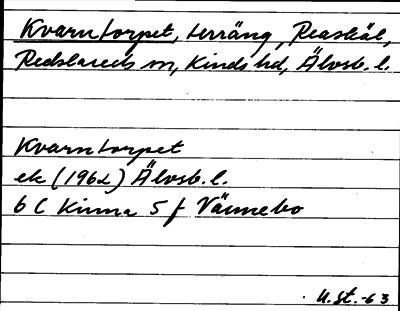 Kvarntorpet, terräng, Reaskäl,
Redslareds sn, Kinds hd, Älvsb. l.
Kvarntorpet
ek (1962) Älvsb. l.
6 C Kinna 5 f Vännebo
U. St. -63